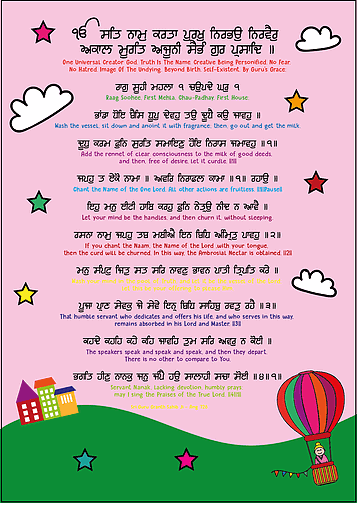 ੴ ਸਤਿ ਨਾਮੁ ਕਰਤਾ ਪੁਰਖੁ ਨਿਰਭਉ ਨਿਰਵੈਰੁ
ਅਕਾਲ ਮੂਰਤਿ ਅਜੂਨੀ ਸੈਭੰ ਗੁਰ ਪ੍ਰਸਾਦਿ ॥
One Universal Creator God. Truth Is The Name. Creative Being Personified. No Fear.
No Hatred. Image Of The Undying. Beyond Birth. Self-Existent. By Guru's Grace:
ਰਾਗੁ ਸੂਹੀ ਮਹਲਾ ੧ ਚਉਪਦੇ ਘਰੁ ੧
Raag Soohee, First Mehla, Chau-Padhay, First House:
ਭਾਂਡਾ ਧੋਇ ਬੈਸਿ ਧੂਪੁ ਦੇਵਹੁ ਤਉ ਦੂਧੈ ਕਉ ਜਾਵਹੁ ॥
Wash the vessel, sit down and anoint it with fragrance; then, go out and get the milk.
ਦੂਧੁ ਕਰਮ ਫੁਨਿ ਸੁਰਤਿ ਸਮਾਇਣੁ ਹੋਇ ਨਿਰਾਸ ਜਮਾਵਹੁ ॥੧॥
Add the rennet of clear consciousness to the milk of good deeds,
and then, free of desire, let it curdle. ||1||
ਜਪਹੁ ਤ ਏਕੋ ਨਾਮਾ ॥ ਅਵਰਿ ਨਿਰਾਫਲ ਕਾਮਾ ॥੧॥ ਰਹਾਉ ॥
Chant the Name of the One Lord. All other actions are fruitless. ||1||Pause||
ਇਹੁ ਮਨੁ ਈਟੀ ਹਾਥਿ ਕਰਹੁ ਫੁਨਿ ਨੇਤ੍ਰਉ ਨੀਦ ਨ ਆਵੈ ॥
Let your mind be the handles, and then churn it, without sleeping.
ਰਸਨਾ ਨਾਮੁ ਜਪਹੁ ਤਬ ਮਥੀਐ ਇਨ ਬਿਧਿ ਅੰਮ੍ਰਿਤੁ ਪਾਵਹੁ ॥੨॥
If you chant the Naam, the Name of the Lord, with your tongue,
then the curd will be churned. In this way, the Ambrosial Nectar is obtained. ||2||
ਮਨੁ ਸੰਪਟੁ ਜਿਤੁ ਸਤ ਸਰਿ ਨਾਵਣੁ ਭਾਵਨ ਪਾਤੀ ਤ੍ਰਿਪਤਿ ਕਰੇ ॥
ਪੂਜਾ ਪ੍ਰਾਣ ਸੇਵਕੁ ਜੇ ਸੇਵੇ ਇਨ੍ਹ ਬਿਧਿ ਸਾਹਿਬੁ ਰਵਤੁ ਰਹੈ ॥੩॥
That humble servant who dedicates and offers his life, and who serves in this way,
remains absorbed in his Lord and Master. ||3||
ਕਹਦੇ ਕਹਹਿ ਕਹੇ ਕਹਿ ਜਾਵਹਿ ਤੁਮ ਸਰਿ ਅਵਰੁ ਨ ਕੋਈ ॥
The speakers speak and speak and speak, and then they depart.
There is no other to compare to You.
ਭਗਤਿ ਹੀਣੁ ਨਾਨਕੁ ਜਨੁ ਜੰਪੈ ਹਉ ਸਾਲਾਹੀ ਸਚਾ ਸੋਈ ॥੪॥੧॥
Servant Nanak, lacking devotion, humbly prays:
may I sing the Praises of the True Lord. ||4||1||